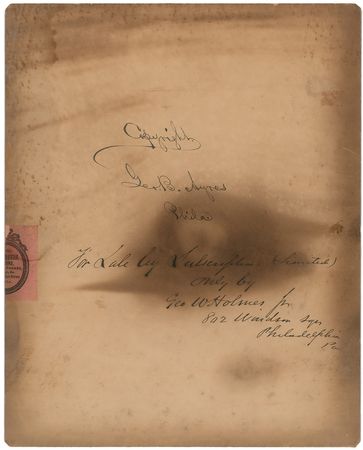 Copyright
Geo B. Ayres
Phila
For Sale by Subscription (Limited)
only by
Geo W Holmes Jr
802 Windsor Sqr
Philadelphia
Pa